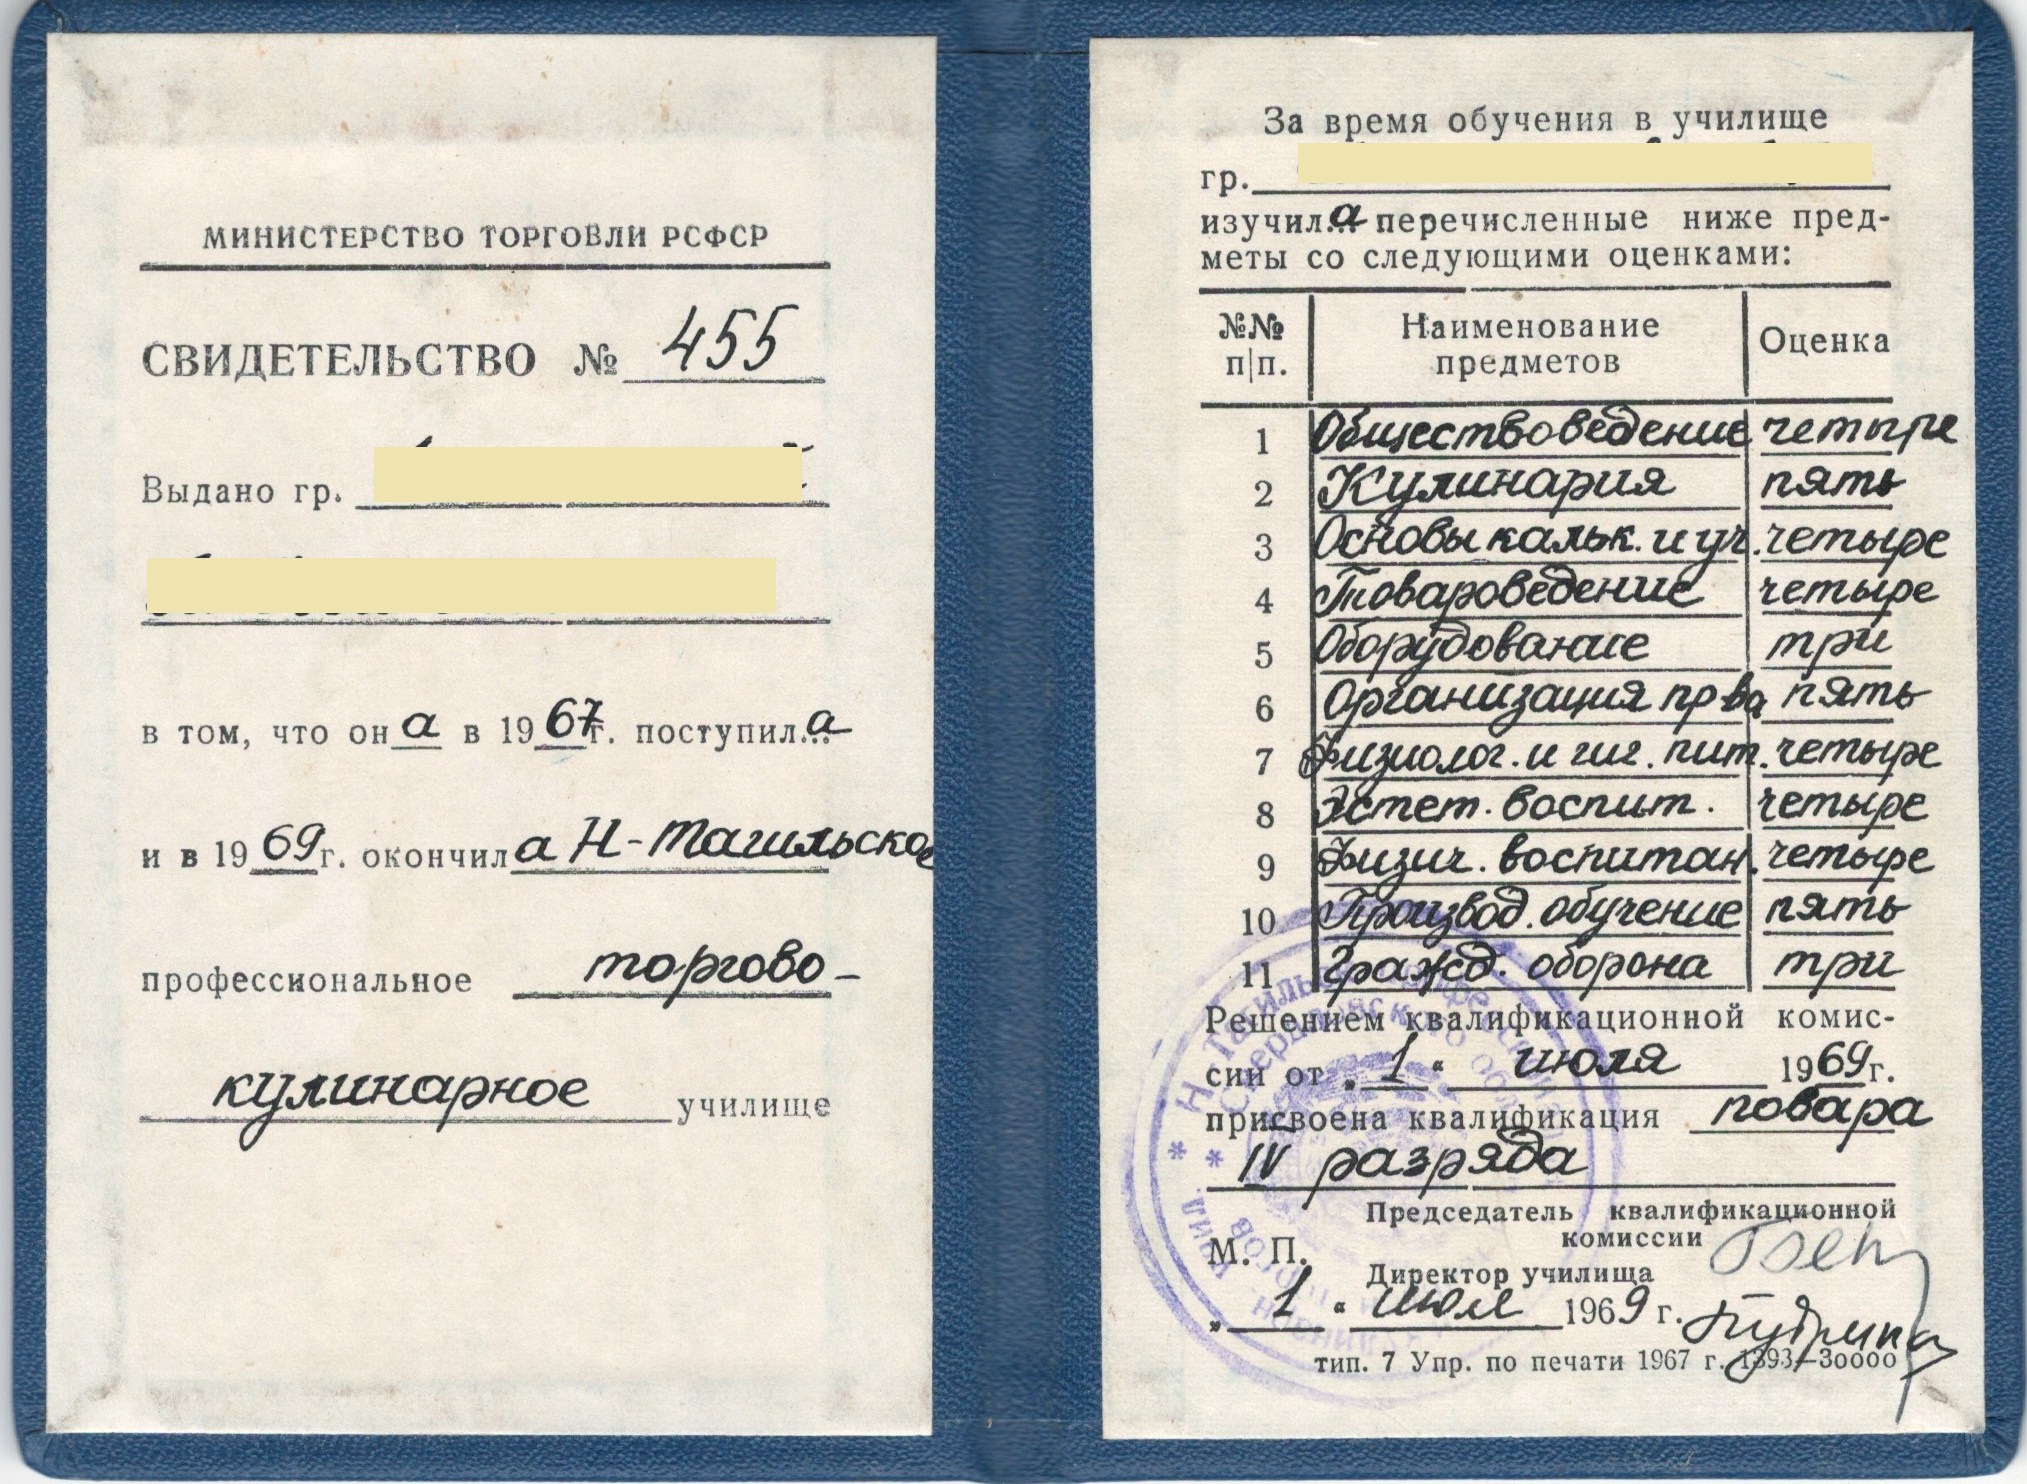 МИНИСТЕРСТВО ТОРГОВЛИ РСФСР
СВИДЕТЕЛЬСТВО № 455
Выдано гр.
в том, что он а в 1967 г. поступил...а
и в 1969 г. окончил а Н-Тагильское
профессиональное торгово-
кулинарное училище
За время обучения в училище
гр.
изучил.а перечисленные ниже пред-
меты со следующими оценками:
№№ п/п. Наименование предметов Оценка
1 Обществоведение четыре
2 Кулинария пять
3 Основы кальк. и уч. четыре
4 Товароведение четыре
5 Оборудование три
6 Организация пр-ва пять
7 Физиолог. и гиг. пит. четыре
8 Эстет. воспит. четыре
9 Физич. воспитан. четыре
10 Производ. обучение пять
11 Гражд. оборона три
Решением квалификационной комис-
сии от „ 1 “ июля 1969 г.
присвоена квалификация повара
IV разряда
Председатель квалификационной
комиссии
М. П.
Директор училища
„ 1 “ июля 1969 г.
тип. 7 Упр. по печати 1967 г. 1393—30000